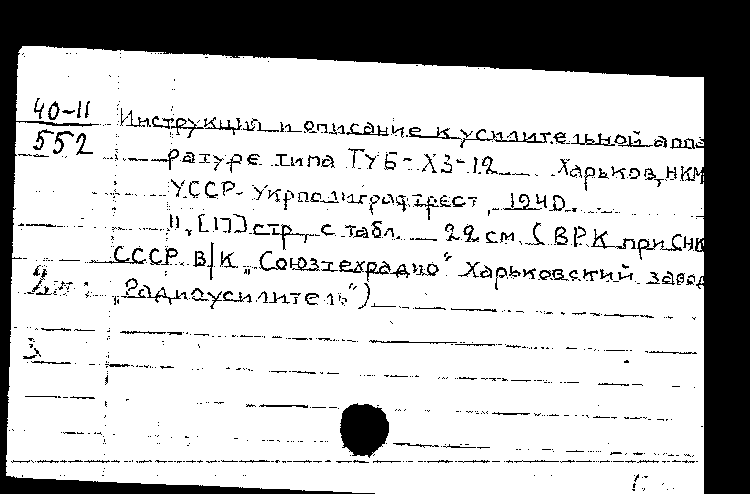 40-11
552
Инструкция и описание к усилительной аппа
ратуре типа ТУБ-ХЗ-12 Харьков, НКМ
УССР-Укрполиграфтрест, 1940.
11, [17] стр, с табл. 22 см. (ВРК при СНК
СССР. В/К „Союзтехрадио" Харьковский завод
2 „Радиоусилитель")
3